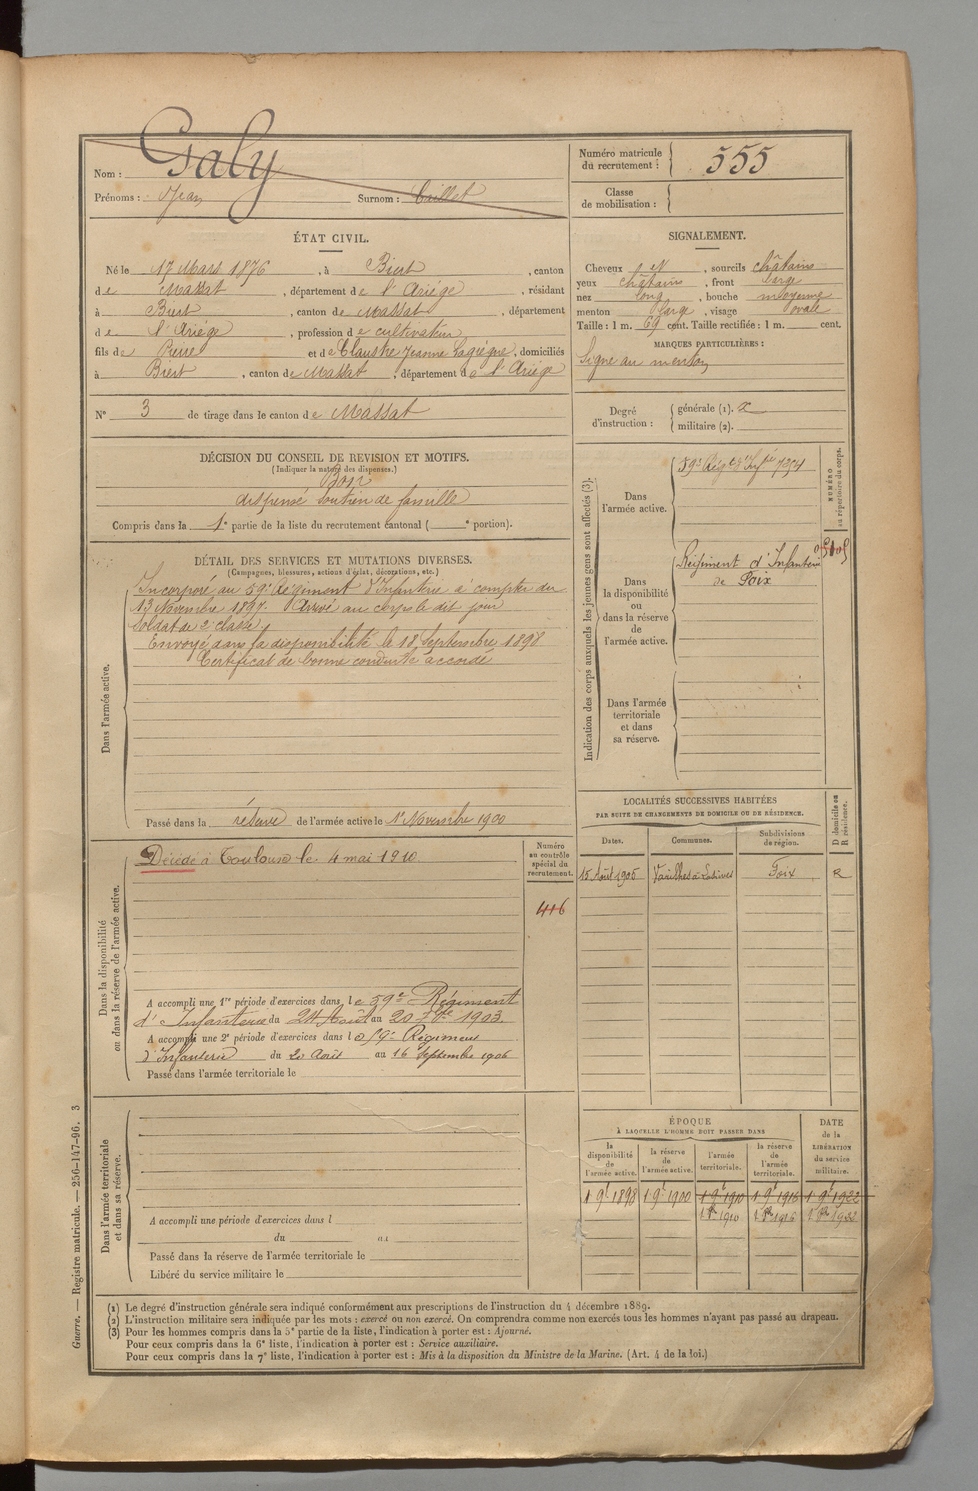 Nom : Galy
Prénoms : Jean Surnom : Caillat
Numéro matricule du recrutement : 555
Classe de mobilisation :
ÉTAT CIVIL.
Né le 17 Mars 1876, à Biert, canton
de Massat, département de l'Ariège, résidant
à Biert, canton de Massat, département
de l'Ariège, profession de cultivateur
fils de Pierre et de Claustre Jeanne, domiciliés
à Biert, canton de Massat, département de l'Ariège
N° 3 de tirage dans le canton de Massat
SIGNALEMENT.
Cheveux et, sourcils châtains
yeux châtains, front large
nez long, bouche moyenne
menton large, visage ovale
Taille : 1 m. 69 cent. Taille rectifiée : 1 m. cent.
MARQUES PARTICULIÈRES :
Signe au menton
Degré d'instruction : générale (1).
militaire (2).
DÉCISION DU CONSEIL DE REVISION ET MOTIFS.
(Indiquer la nature des dispenses.)
Bon
dispensé soutien de famille
Compris dans la 1e partie de la liste du recrutement cantonal ( e portion).
DÉTAIL DES SERVICES ET MUTATIONS DIVERSES.
(Campagnes, blessures, actions d'éclat, décorations, etc.)
Dans l'armée active.
Incorporé au 59e Régiment d'Infanterie à compter du
13 Novembre 1897. Arrivé au corps le dit jour
Soldat de 2e classe
Envoyé dans la disponibilité le 18 Septembre 1898
Certificat de bonne conduite accordé
Passé dans la réserve de l'armée active le 1er Novembre 1900
Indication des corps auxquels les jeunes gens sont affectés (3).
NUMÉRO au répertoire du corps.
Dans l'armée active.
59e Régt d'Infrie
Dans la disponibilité ou dans la réserve de l'armée active.
Régiment d'Infanterie
de Foix
Dans l'armée territoriale et dans sa réserve.
LOCALITÉS SUCCESSIVES HABITÉES
PAR SUITE DE CHANGEMENTS DE DOMICILE OU DE RÉSIDENCE.
Dates. Communes. Subdivisions de région. D domicile ou R résidence.
15 Août 1905 Foix R
Dans la disponibilité ou dans la réserve de l'armée active.
Décédé à Toulouse le 4 mai 1910.
Numéro au contrôle spécial du recrutement.
416
A accompli une 1re période d'exercices dans le 59e Régiment
d'Infanterie du 24 Août au 20 7bre 1903.
A accompli une 2e période d'exercices dans le 59e Régiment
d'Infanterie du 20 Août au 16 Septembre 1906
Passé dans l'armée territoriale le
Dans l'armée territoriale et dans sa réserve.
A accompli une période d'exercices dans l
du au
Passé dans la réserve de l'armée territoriale le
Libéré du service militaire le
ÉPOQUE
À LAQUELLE L'HOMME DOIT PASSER DANS
la disponibilité de l'armée active. la réserve de l'armée active. l'armée territoriale. la réserve de l'armée territoriale.
DATE de la LIBÉRATION du service militaire.
1 9e 1898 1 9e 1900 1 9e 1910 1 9e 1916 1 9e 1922
1910 1916 1922
(1) Le degré d'instruction générale sera indiqué conformément aux prescriptions de l'instruction du 4 décembre 1889.
(2) L'instruction militaire sera indiquée par les mots : exercé ou non exercé. On comprendra comme non exercés tous les hommes n'ayant pas passé au drapeau.
(3) Pour les hommes compris dans la 5e partie de la liste, l'indication à porter est : Ajourné.
Pour ceux compris dans la 6e liste, l'indication à porter est : Service auxiliaire.
Pour ceux compris dans la 7e liste, l'indication à porter est : Mis à la disposition du Ministre de la Marine. (Art. 4 de la loi.)
Guerre. — Registre matricule. — 256-147-96. 3